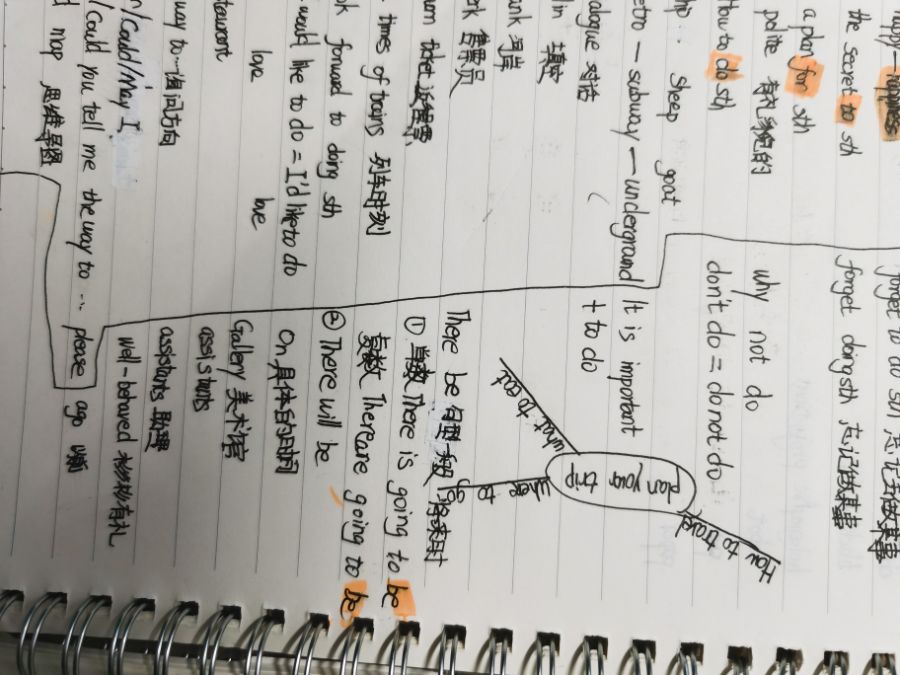 happy — happiness
the secret to sth
a plan for sth
polite 有礼貌的
How to do sth
sheep goat
etro — subway — underground
alogue 对话
填空
河岸
售票员
ticket
times of trains 列车时刻
forward to doing sth
would like to do = I'd like to do
love love
way to…询问方向
/Could/May I
/Could you tell me the way to … please
map 思维导图
forget to do sth 忘记去做某事
forget doing sth 忘记做某事
why not do
don't do = do not do
plan your trip
How to travel
where to go
what to eat
It is important
t to do
There be 句型 一般将来时
① 单数 There is going to be
复数 There are going to be
② There will be
On 具体的时间
Gallery 美术馆
assistants
assistants 助理
well-behaved 彬彬有礼
ago